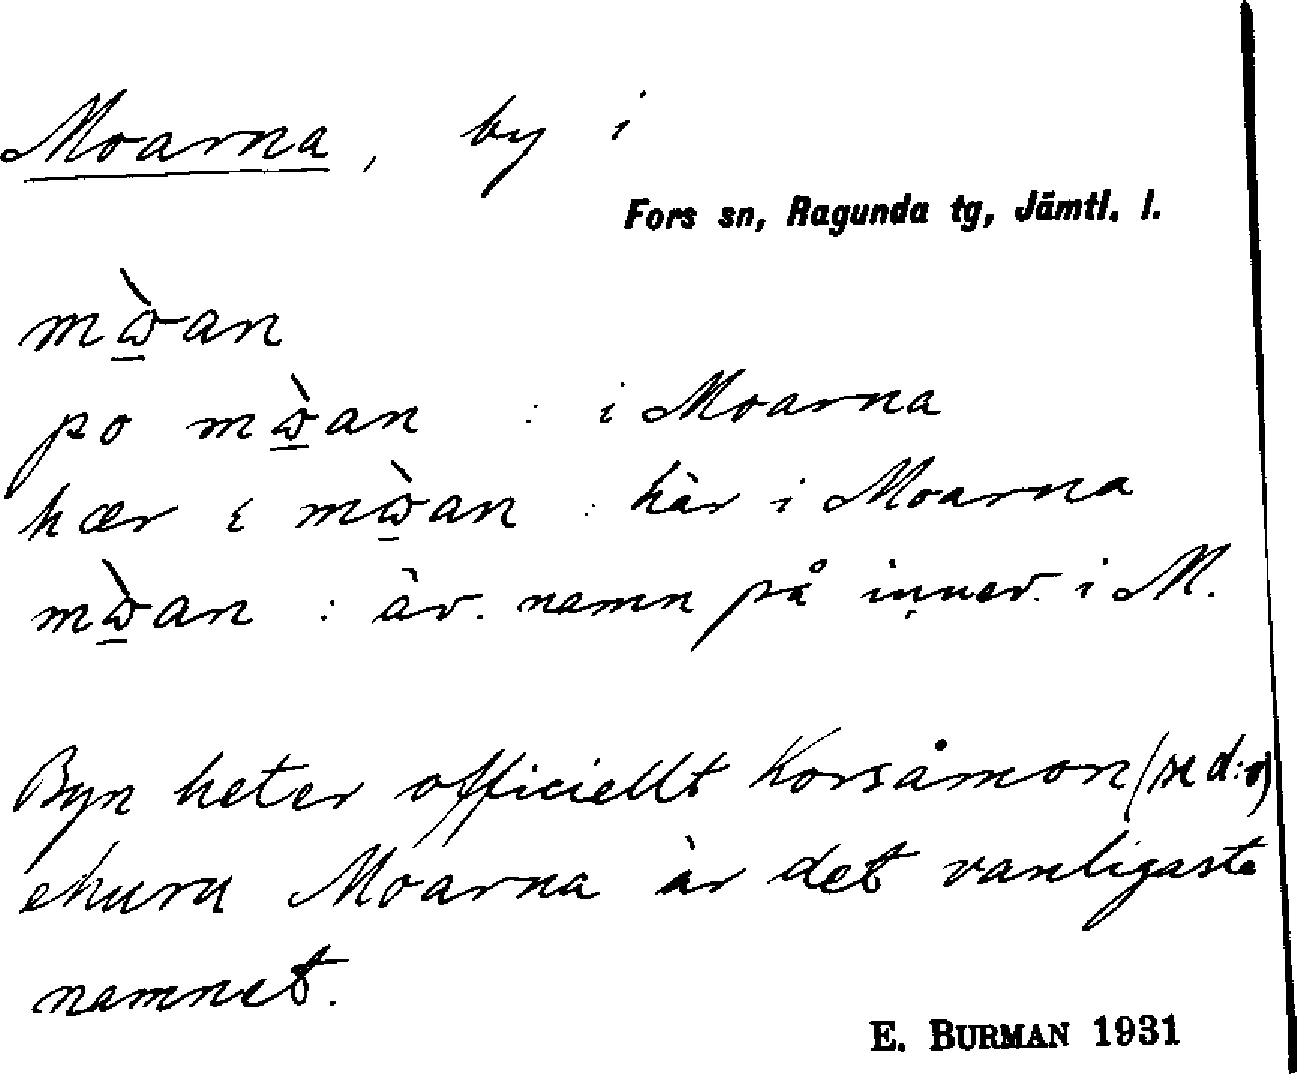 Moarna, by i
Fors sn, Ragunda tg, Jämtl. l.
mὼ̱an
po mὼ̱an : i Moarna
hær i mὼ̱an : här i Moarna
mὼ̱an : äv. namn på inner. i M.
Byn heter officiellt Korsåmon (se d:o)
ehuru Moarna är det vanligaste
namnet.
E. BURMAN 1931